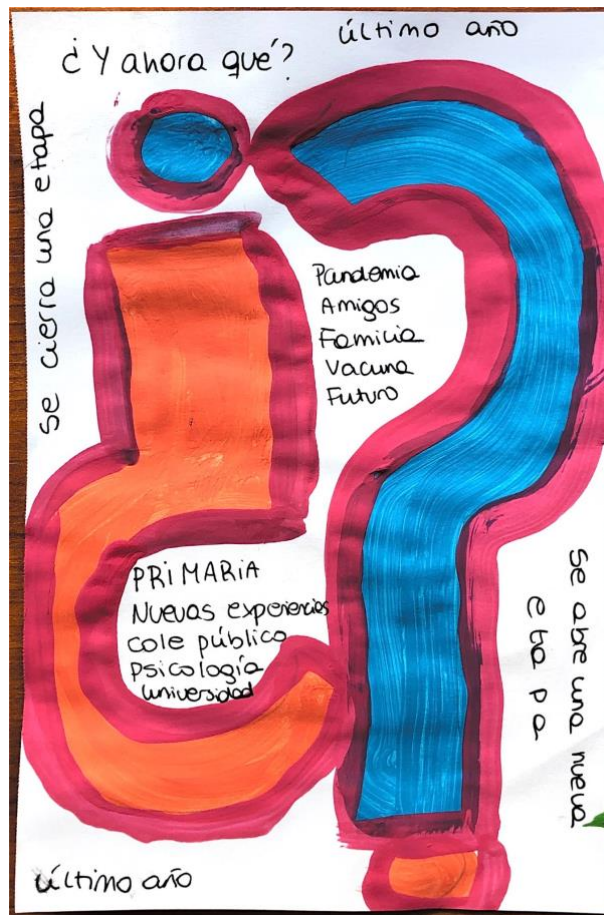 último año
¿Y ahora qué?
se cierra una etapa
Pandemia
Amigos
Familia
Vacuna
Futuro
PRIMARIA
Nuevas experiencias
cole público
Psicología
universidad
se abre una nueva
etapa
último año